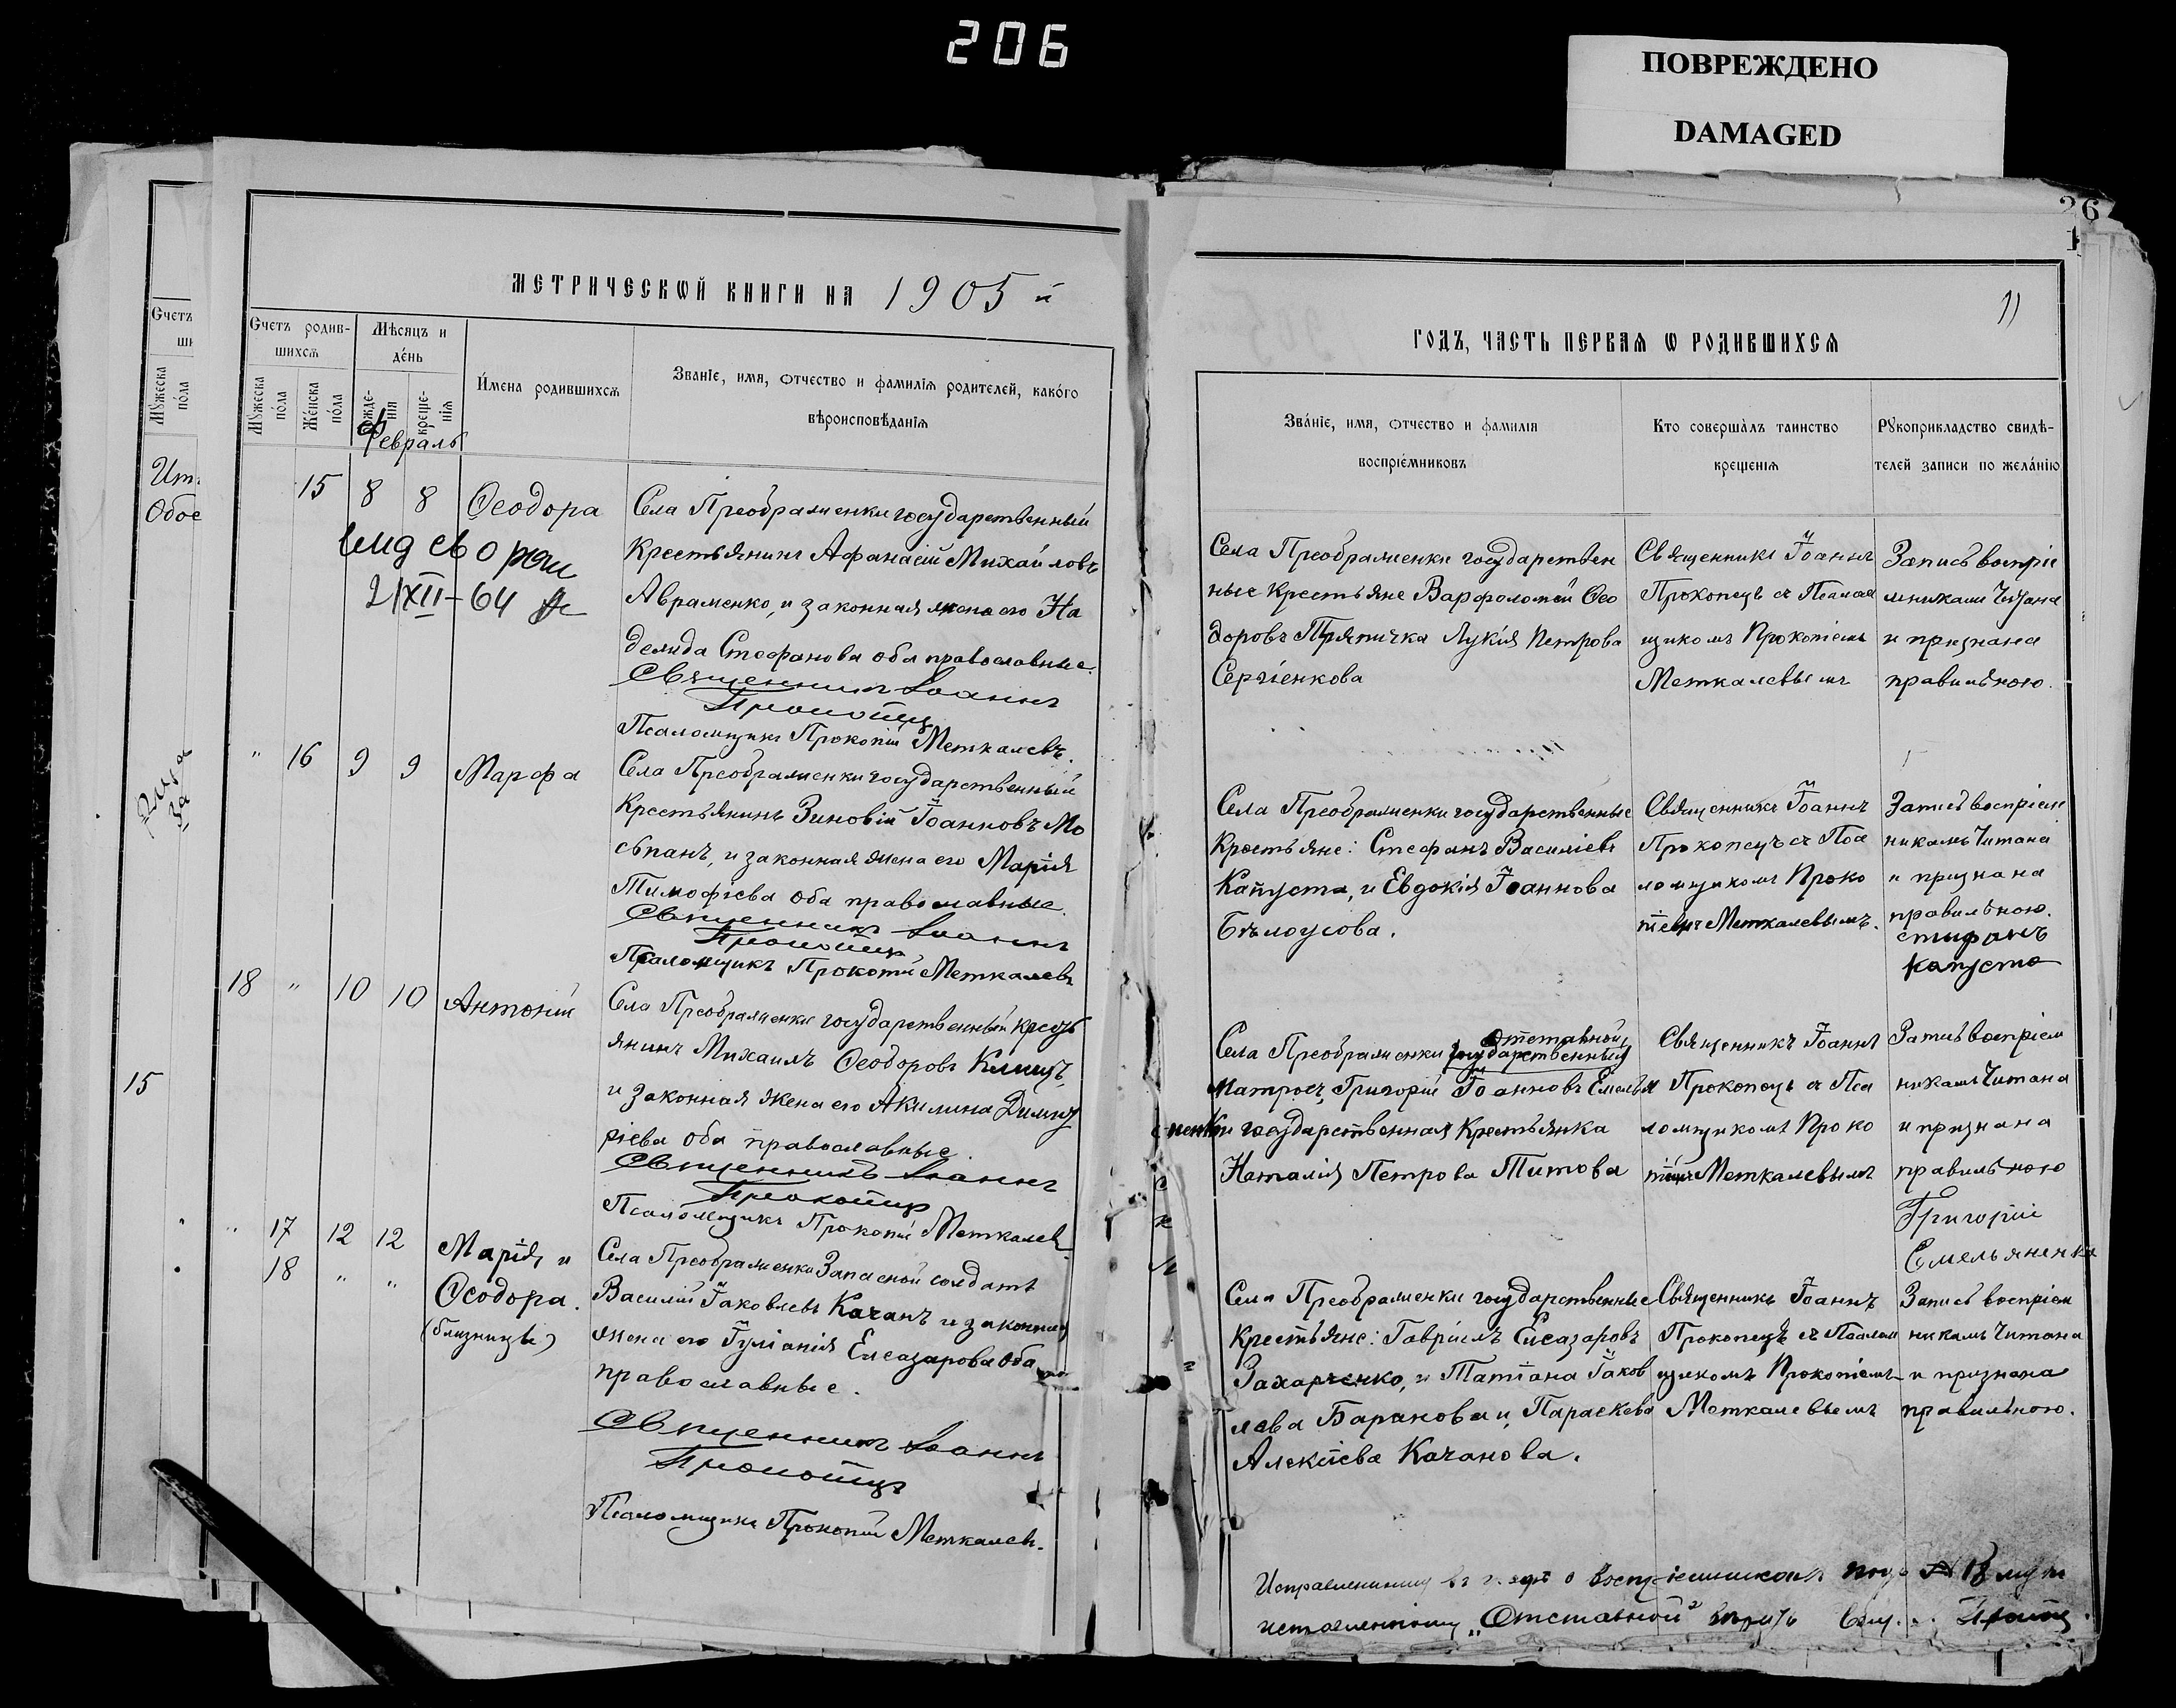 206
ПОВРЕЖДЕНО
DAMAGED
26
Счетъ
Мꙋжеска пола
Обое
15
МЕТРИЧЕСКѠЙ КНИГИ НА 1905 й
Счетъ родив-
шихсѧ
Мѣсяцъ и
де́нь
И́мена родившихсѧ
Званіе, имя, ѿчество и фамиліѧ родителей, како́го
вѣроисповѣ́даніѧ
Мꙋжеска по́ла
Же́нска по́ла
рожде-
нія
креще-
ніѧ
Февраль
15 8 8 Ѳеодора
Села Преображенки государственный
Крестьянинъ Афанасій Михайловъ
Авраменко, и законная жена его На
дежда Стефанова оба православные.
Священникъ Іоаннъ
Прокопецъ
Псаломщикъ Прокопій Меткалевъ.
21/XII-64
" 16 9 9 Марфа
Села Преображенки государственный
Крестьянинъ Зиновій Іоанновъ Мо
спанъ, и законная жена его Марія
Тимофіева оба православные.
Священникъ Іоаннъ
Прокопецъ
Псаломщикъ Прокопій Меткалевъ
18 " 10 10 Антоній
Села Преображенки государственный крест
янинъ Михаилъ Ѳеодоровъ
и законная жена его Акилина Димит
ріева оба православные.
Священникъ Іоаннъ
Прокопецъ
Псаломщикъ Прокопій Меткалевъ
" 17 12 12 Марія и
18 " " Ѳеодора.
(близнецы)
Села Преображенки Запасной солдатъ
Василій Іаковлевъ Качанъ и законная
жена его Іуліанія Елеазарова оба
православные.
Священникъ Іоаннъ
Прокопецъ
Псаломщикъ Прокопій Меткалевъ.
11
ГОДЪ, ЧАСТЬ ПЕРВАѦ Ѡ РОДИВШИХСѦ
Зва́ніе, имя, ѿчество и фамиліѧ
воспріе́мниковъ
Кто соверша́лъ таинство
крещеніѧ
Рꙋкоприкладство свидѣ-
телей записи по жела́нію
Села Преображенки государствен
ные Крестьяне Варфоломей Ѳео
доровъ Тряпичка Лукія Петрова
Сергіенкова
Священникъ Іоаннъ
Прокопецъ съ Псалом
щикомъ Прокопіемъ
Меткалевымъ
Запись воспріе
мниками читана
и признана
правильною.
Села Преображенки государственные
Крестьяне: Стефанъ Василіевъ
Капуста, и Евдокія Іоаннова
Бѣлоусова.
Священникъ Іоаннъ
Прокопецъ съ Пса
ломщикомъ Проко
піемъ Меткалевымъ.
Запись воспріем
никамъ Читана
и признана
правильною.
стифанъ
капуста
Отставной
Села Преображенки государственный
Матросъ, Григорій Іоанновъ Емелья
ненко государственная Крестьянка
Наталія Петрова Титова
Священникъ Іоаннъ
Прокопецъ съ Пса
ломщикомъ Проко
піемъ Меткалевымъ
Запись воспріем
никамъ Читана
и признана
правильною
Григорій
Емельяненко
Села Преображенки государственные
Крестьяне: Гавріилъ Елеазаровъ
Захарченко, и Татіана Іаков
лева Баранова и, Параскева
Алексіева Качанова.
Священникъ Іоаннъ
Прокопецъ съ Псалом
щикомъ Прокопіемъ
Меткалевымъ
Запись воспріем
никамъ Читана
и признана
правильною.
Исправленному въ о воспріемникахъ подъ № 18 муж
исправленному „Отставной" вѣрить Свящ.